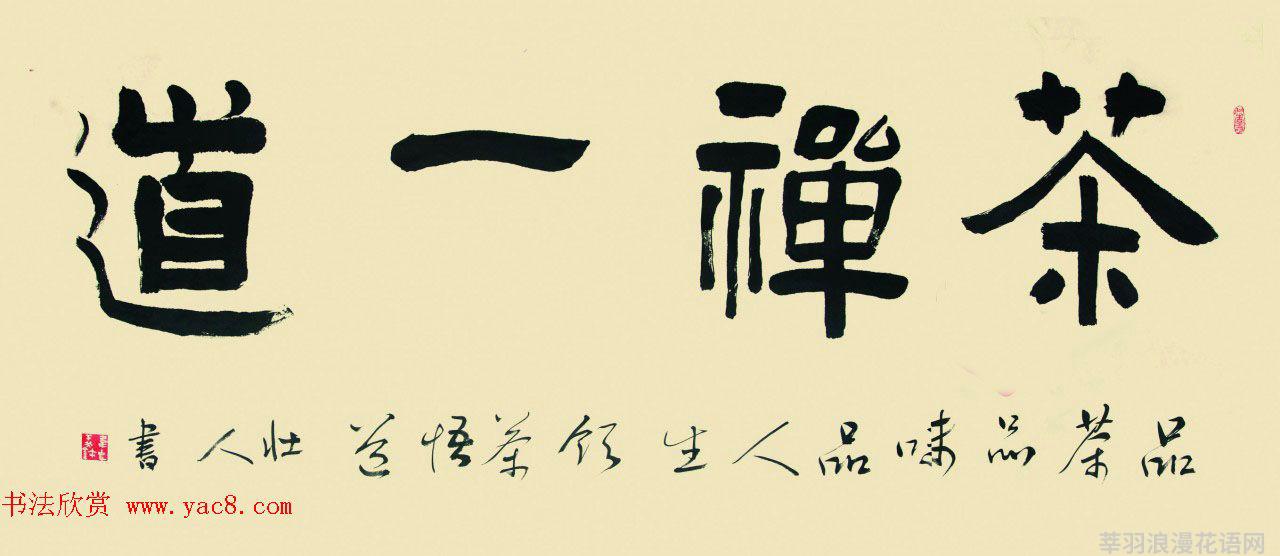 茶禪一道
品茶品味品人生饮茶悟道壮人書
书法欣赏 www.yac8.com
莘羽浪漫花语网